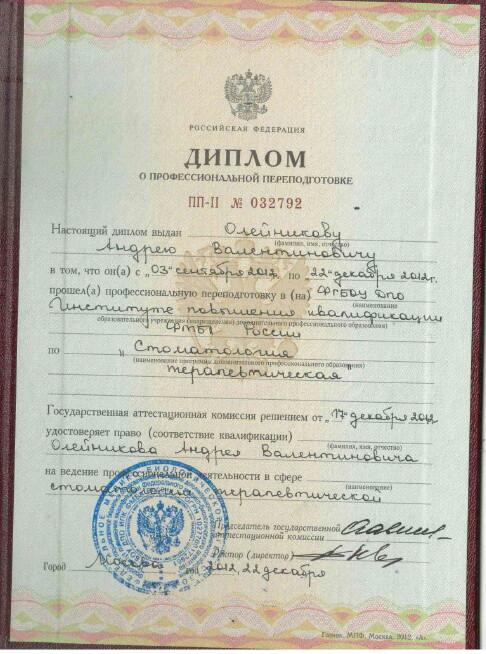 РОССИЙСКАЯ ФЕДЕРАЦИЯ
ДИПЛОМ
О ПРОФЕССИОНАЛЬНОЙ ПЕРЕПОДГОТОВКЕ
ПП-II № 032792
Настоящий диплом выдан Олейникову
(фамилия, имя, отчество)
Андрею Валентиновичу
в том, что он(а) с „03" сентября 2012 по „22" декабря 2012г.
прошел(а) профессиональную переподготовку в (на) ФГБОУ ДПО
(наименование
Институте повышения квалификации
образовательного учреждения (подразделения) дополнительного профессионального образования)
ФМБА России
по „Стоматология
(наименование программы дополнительного профессионального образования)
терапевтическая"
Государственная аттестационная комиссия решением от „17" декабря 2012
удостоверяет право (соответствие квалификации)
(фамилия, имя, отчество)
Олейникова Андрея Валентиновича
на ведение профессиональной деятельности в сфере
(наименование)
стоматологии терапевтической
Председатель государственной
аттестационной комиссии
Ректор (директор)
Город Москва год 2012, 22 декабря
Гознак, МПФ, Москва, 2012, «А».